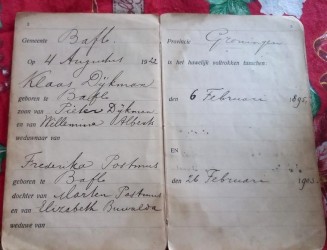 Gemeente Baflo.
Op 4 Augustus 1922
Klaas Dijkman
geboren te Baflo
zoon van Pieter Dijkman
en van Willemina Albeck
weduwnaar van
Frederika Postmus
geboren te Baflo
dochter van Marten Postmus
en van Elizabeth Buwalda
weduwe van
Provincie Groningen
is het huwelijk voltrokken tusschen
den 6 Februari 1895
EN
den 26 Februari 1902